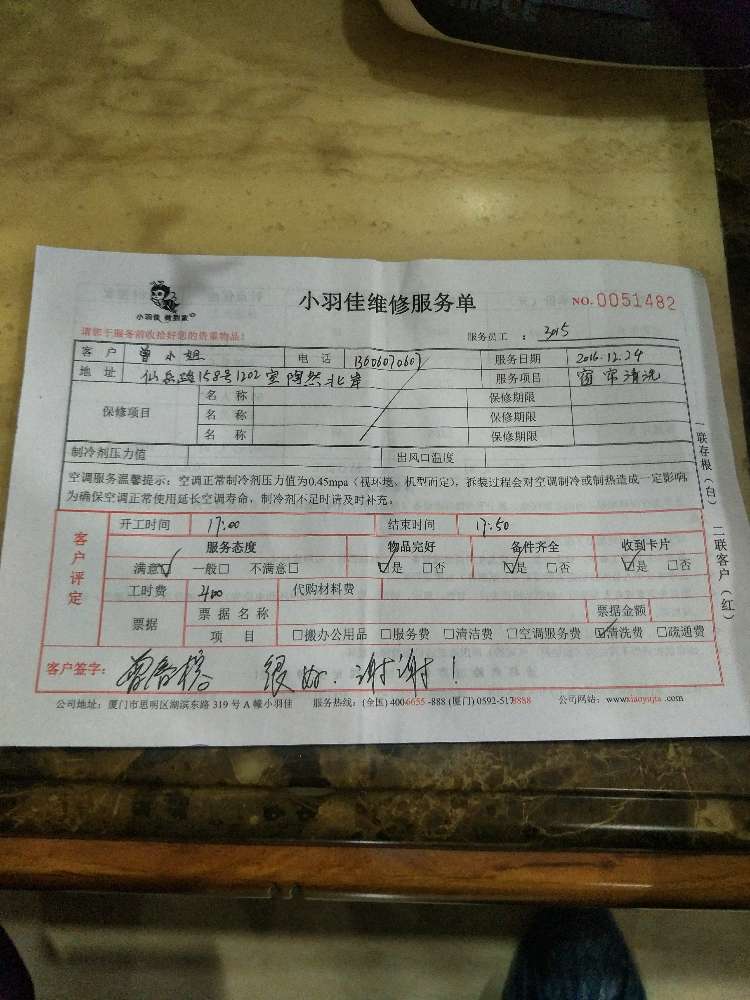 小羽佳 做到家
小羽佳维修服务单
NO.0051482
请您于服务前收拾好您的贵重物品!
服务员工 : 3015
客户 曾小姐 电话 13606070607 服务日期 2016.12.24
地址 仙岳路158号1202室陶然北岸 服务项目 窗帘清洗
保修项目 名称 保修期限
名称 保修期限
名称 保修期限
制冷剂压力值 出风口温度
空调服务温馨提示：空调正常制冷剂压力值为0.45mpa（视环境、机型而定），拆装过程会对空调制冷或制热造成一定影响,
为确保空调正常使用延长空调寿命，制冷剂不足时请及时补充。
一联存根（白） 二联客户（红）
客户评定
开工时间 17:00 结束时间 17:50
服务态度 物品完好 备件齐全 收到卡片
满意☑ 一般□ 不满意□ ☑是 □否 ☑是 □否 ☑是 □否
工时费 400 代购材料费
票据 票据名称 票据金额
项目 □搬办公用品 □服务费 □清洁费 □空调服务费 ☑清洗费 □疏通费
客户签字： 很好.谢谢!
公司地址：厦门市思明区湖滨东路 319 号 A 幢小羽佳 服务热线：(全国) 4006655-888 (厦门) 0592-5178888 公司网站：www.xiaoyujia.com